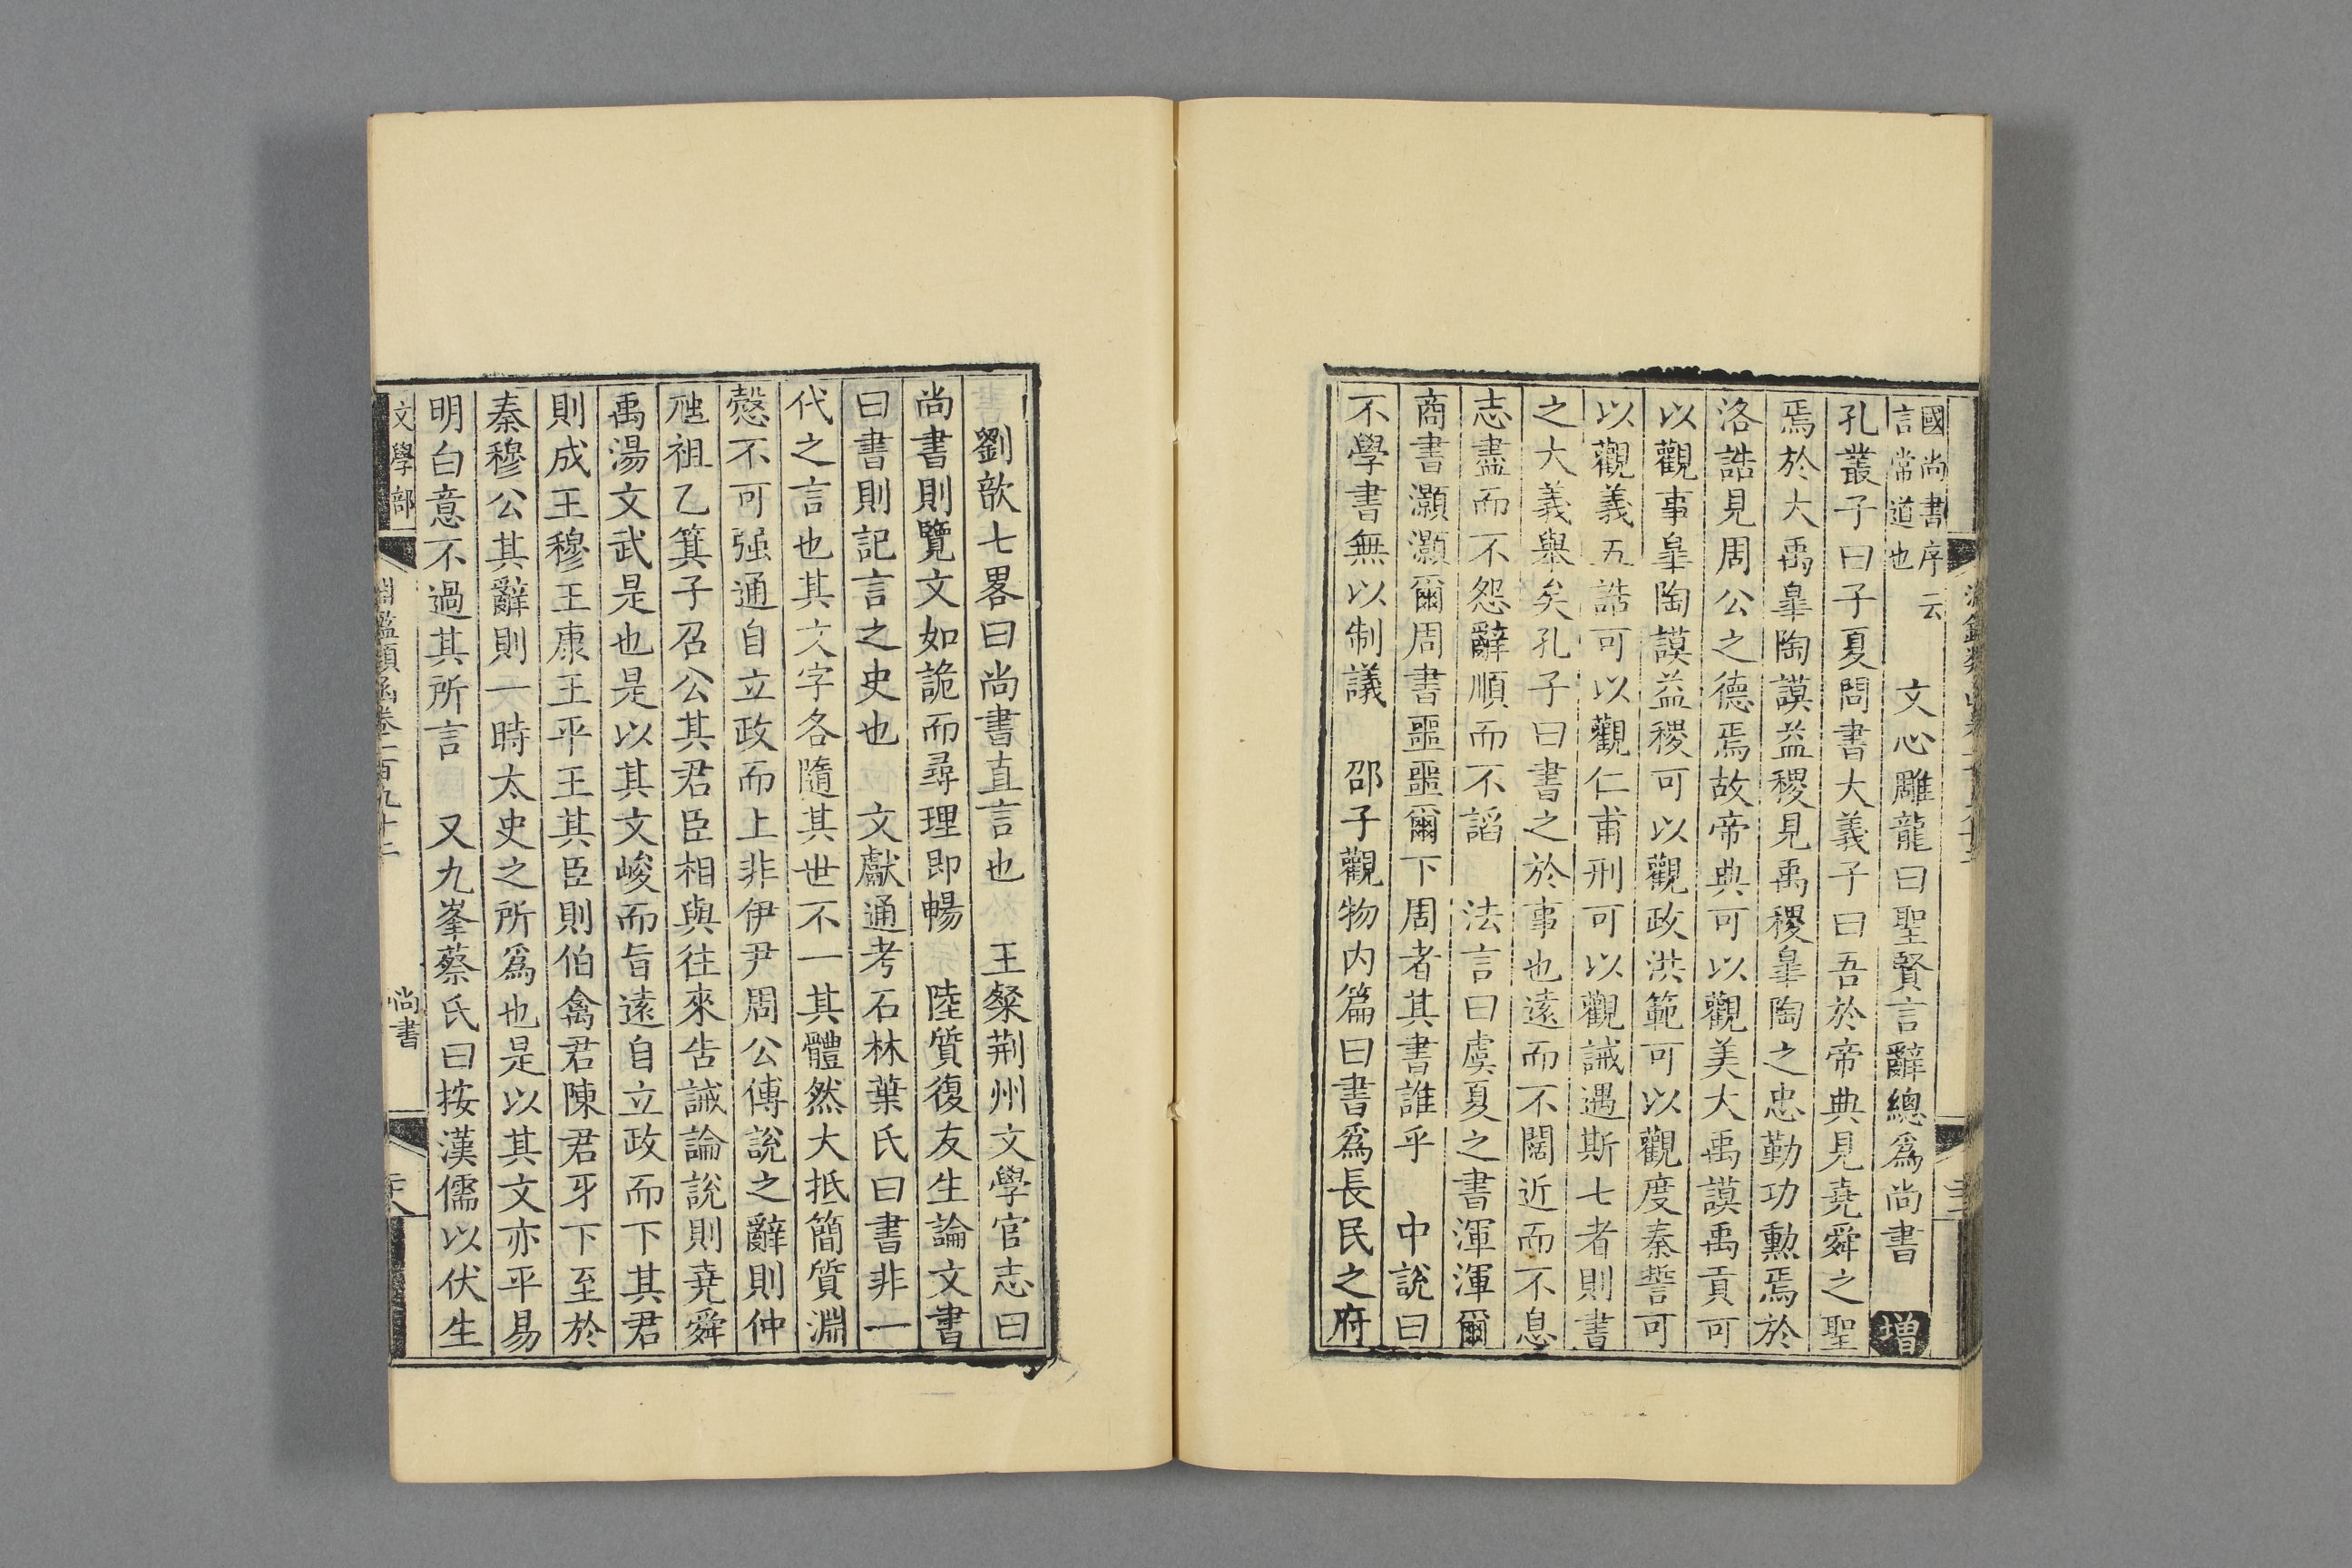 國尚書序云
言常道也
文心雕龍曰聖賢言辭總爲尚書 增
孔叢子曰子夏問書大義子曰吾於帝典見堯舜之聖
焉於大禹臯陶謨益稷見禹稷臯陶之忠勤功勳焉於
洛誥見周公之德焉故帝典可以觀美大禹謨禹貢可
以觀事臯陶謨益稷可以觀政洪範可以觀度秦誓可
以觀義五誥可以觀仁甫刑可以觀誡遇斯七者則書
之大義舉矣孔子曰書之於事也遠而不闊近而不息
志盡而不怨辭順而不謟 法言曰虞夏之書渾渾爾
商書灝灝爾周書噩噩爾下周者其書誰乎 中說曰
不學書無以制議 邵子觀物内篇曰書爲長民之府
劉歆七畧曰尚書直言也 王粲荆州文學官志曰
尚書則覽文如詭而尋理即暢 陸質復友生論文書
曰書則記言之史也 文獻通考石林葉氏曰書非一
代之言也其文字各隨其世不一其體然大抵簡質淵
慤不可强通自立政而上非伊尹周公傅說之辭則仲
虺祖乙箕子召公其君臣相與往來告誡論說則堯舜
禹湯文武是也是以其文峻而旨遠自立政而下其君
則成王穆王康王平王其臣則伯禽君陳君牙下至於
秦穆公其辭則一時太史之所爲也是以其文亦平易
明白意不過其所言 又九峯蔡氏曰按漢儒以伏生
文學部
淵鑑類函卷一百九十二
尚書